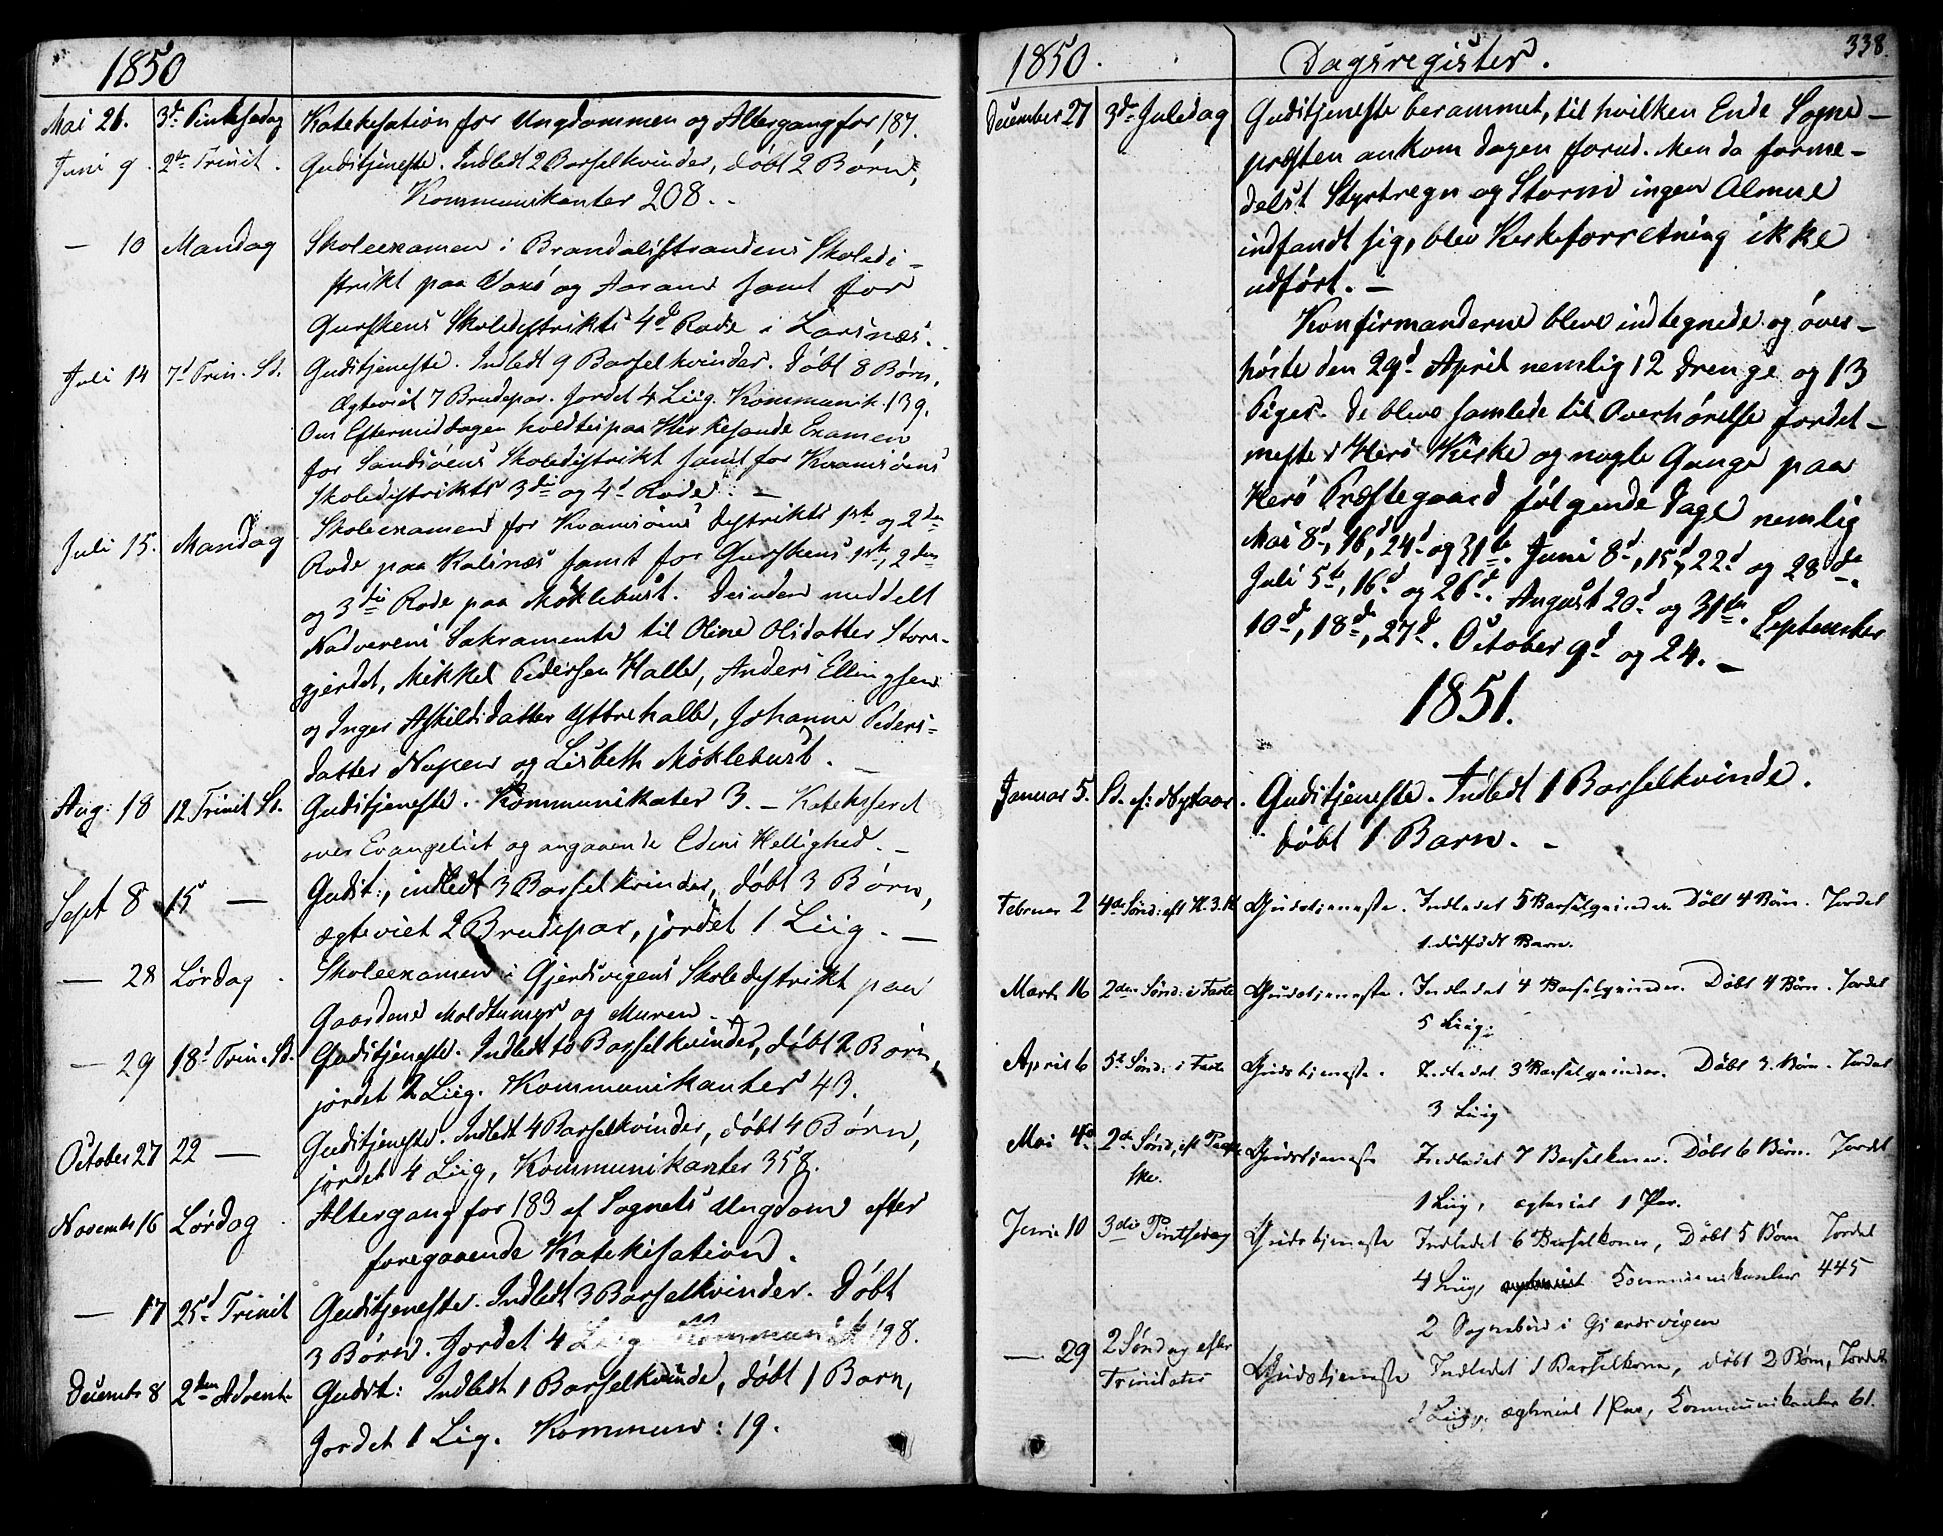 1850
Mai 21. 3d Pintsedag Katekisation for Ungdommen og Altergang for 187.
Juni 9. 2d Trinit. Gudstjeneste. Indledt 2 Barselkvinder, døbt 2 Børn,
Kommunikanter 208.
— 10 Mandag Skoleexamen i Brandalsstrandens Skoledi-
strikt paa Voxö og Aaram samt for
Gurskens Skoledistrikts 4d Rode i Larsnæs.
Juli 14 7d Trin. Sd. Gudstjeneste. Indledt 9 Barselkvinder. Døbt 8 Børn,
Ægteviet 7 Brudepar. Jordet 4 Liig. Kommunik. 139.
Om Eftermiddagen holdtes paa Kirkesande Examen
for Sandsøens Skoledistrikt samt for Kvamsøens
Skoledistrikts 3die og 4d Rode. —
Juli 15. Mandag Skoleexamen for Kvamsøens Distrikts 1ste og 2den
Rode paa Kalsnæs samt for Gurskens 1ste, 2den
og 3die Rode paa Möklebust. Desuden meddelt
Nadverens Sakramente til Oline Olsdatter Store-
gjerdet, Mikkel Pedersen Halle, Anders Ellingsen
og Inger Askildsdatter Yttrehalle, Johanne Peders-
datter Nupen og Lisbeth Möklebust. —
Aug: 18 12 Trinit Sd. Gudstjeneste. Kommunikater 3. — Katekiseret
over Evangeliet og angaaende Edens Hellighed. —
Sept 8 15 — Gudst:, indledt 3 Barselkvinder, døbt 3 Børn,
ægteviet 2 Brudepar, jordet 1 Liig. —
— 28 Lørdag. Skoleexamen i Gjerdsvigens Skoledistrikt paa
Gaardene Moldtumyr og Muren. —
— 29 18d Trin. Sd. Gudstjeneste. Indledt 10 Barselkvinder, døbt 2 Børn,
jordet 2 Liig. Kommunikanter 43.
October 27 22 — Gudstjeneste. Indledt 4 Barselkvinder, døbt 4 Børn,
jordet 4 Liig, Kommunikanter 358.
Novembr 16 Lørdag. Altergang for 183 af Sognets Ungdom efter
foregaaende Katekisation.
— 17 25d Trinit Gudstjeneste. Indledt 3 Barselkvinder. Døbt
3 Børn. Jordet 4 Liig Kommunik 198.
Decembr 8 2den Advent. Gudst: Indledt 1 Barselkvinde, døbt 1 Barn,
Jordet 1 Liig. Kommun: 19.
1850. Dagsregister. 338
December 27 3d Juledag Gudstjeneste berammet, til hvilken Ende Sogne-
præsten ankom Dagen forud. Men da forme-
delst Styrtregn og Storm ingen Almue
indfandt sig, blev Kirkeforretning ikke
udført. —
Konfirmanderne bleve indtegnede og over-
hørte den 29d April nemlig 12 Drenge og 13
Piger. De bleve samlede til Overhørelse fordet-
meste i Herö Kirke og nogle Gange paa
Herö Præstegaard følgende Dage nemlig
Mai 8d, 16d, 24d og 31te. Juni 8d, 15d, 22d og 28de.
Juli 5te, 16d og 26d. August 20d og 31te. September
10d, 18de, 27d. October 9d og 24. —
1851.
Januar 5. Sd. ef: Nytaar. Gudstjeneste. Indledt 1 Barselkvinde.
døbt 1 Barn. —
Februar 2 4de Sønd: eft H. 3. K Gudstjeneste. Indledet 5 Barselqvinder. Døbt 4 Børn. Jordet
1 dødfødt Barn.
Marts 16 2den Sønd: i Faste Gudstjeneste. Indledet 4 Barselqvinder. Døbt 4 Børn. Jordet
5 Liig.
April 6 5te Sønd: i Faste Gudstjeneste. Indledet 3 Barselqvinder. Døbt 3 Børn. Jordet
3 Liig
Mai 4de 2de Sønd, eft Paa-
ske. Gudstjeneste Indledet 7 Barselkoner. Døbt 6 Børn. Jordet
1 Liig, ægteviet 1 Par.
Juni 10 3die Pintsedag Gudstjeneste Indledet 6 Barselkoner, Døbt 5 Børn Jordet
4 Liig, Communikanter 445
2 Sognebud i Gjerdsvigen
— 29 2 Søndag efter
Trinitatis Gudstjeneste Indledet 1 Barselkone, døbt 2 Børn, Jordet
2 Liig, ægteviet 1 Par, Communikanter 61.